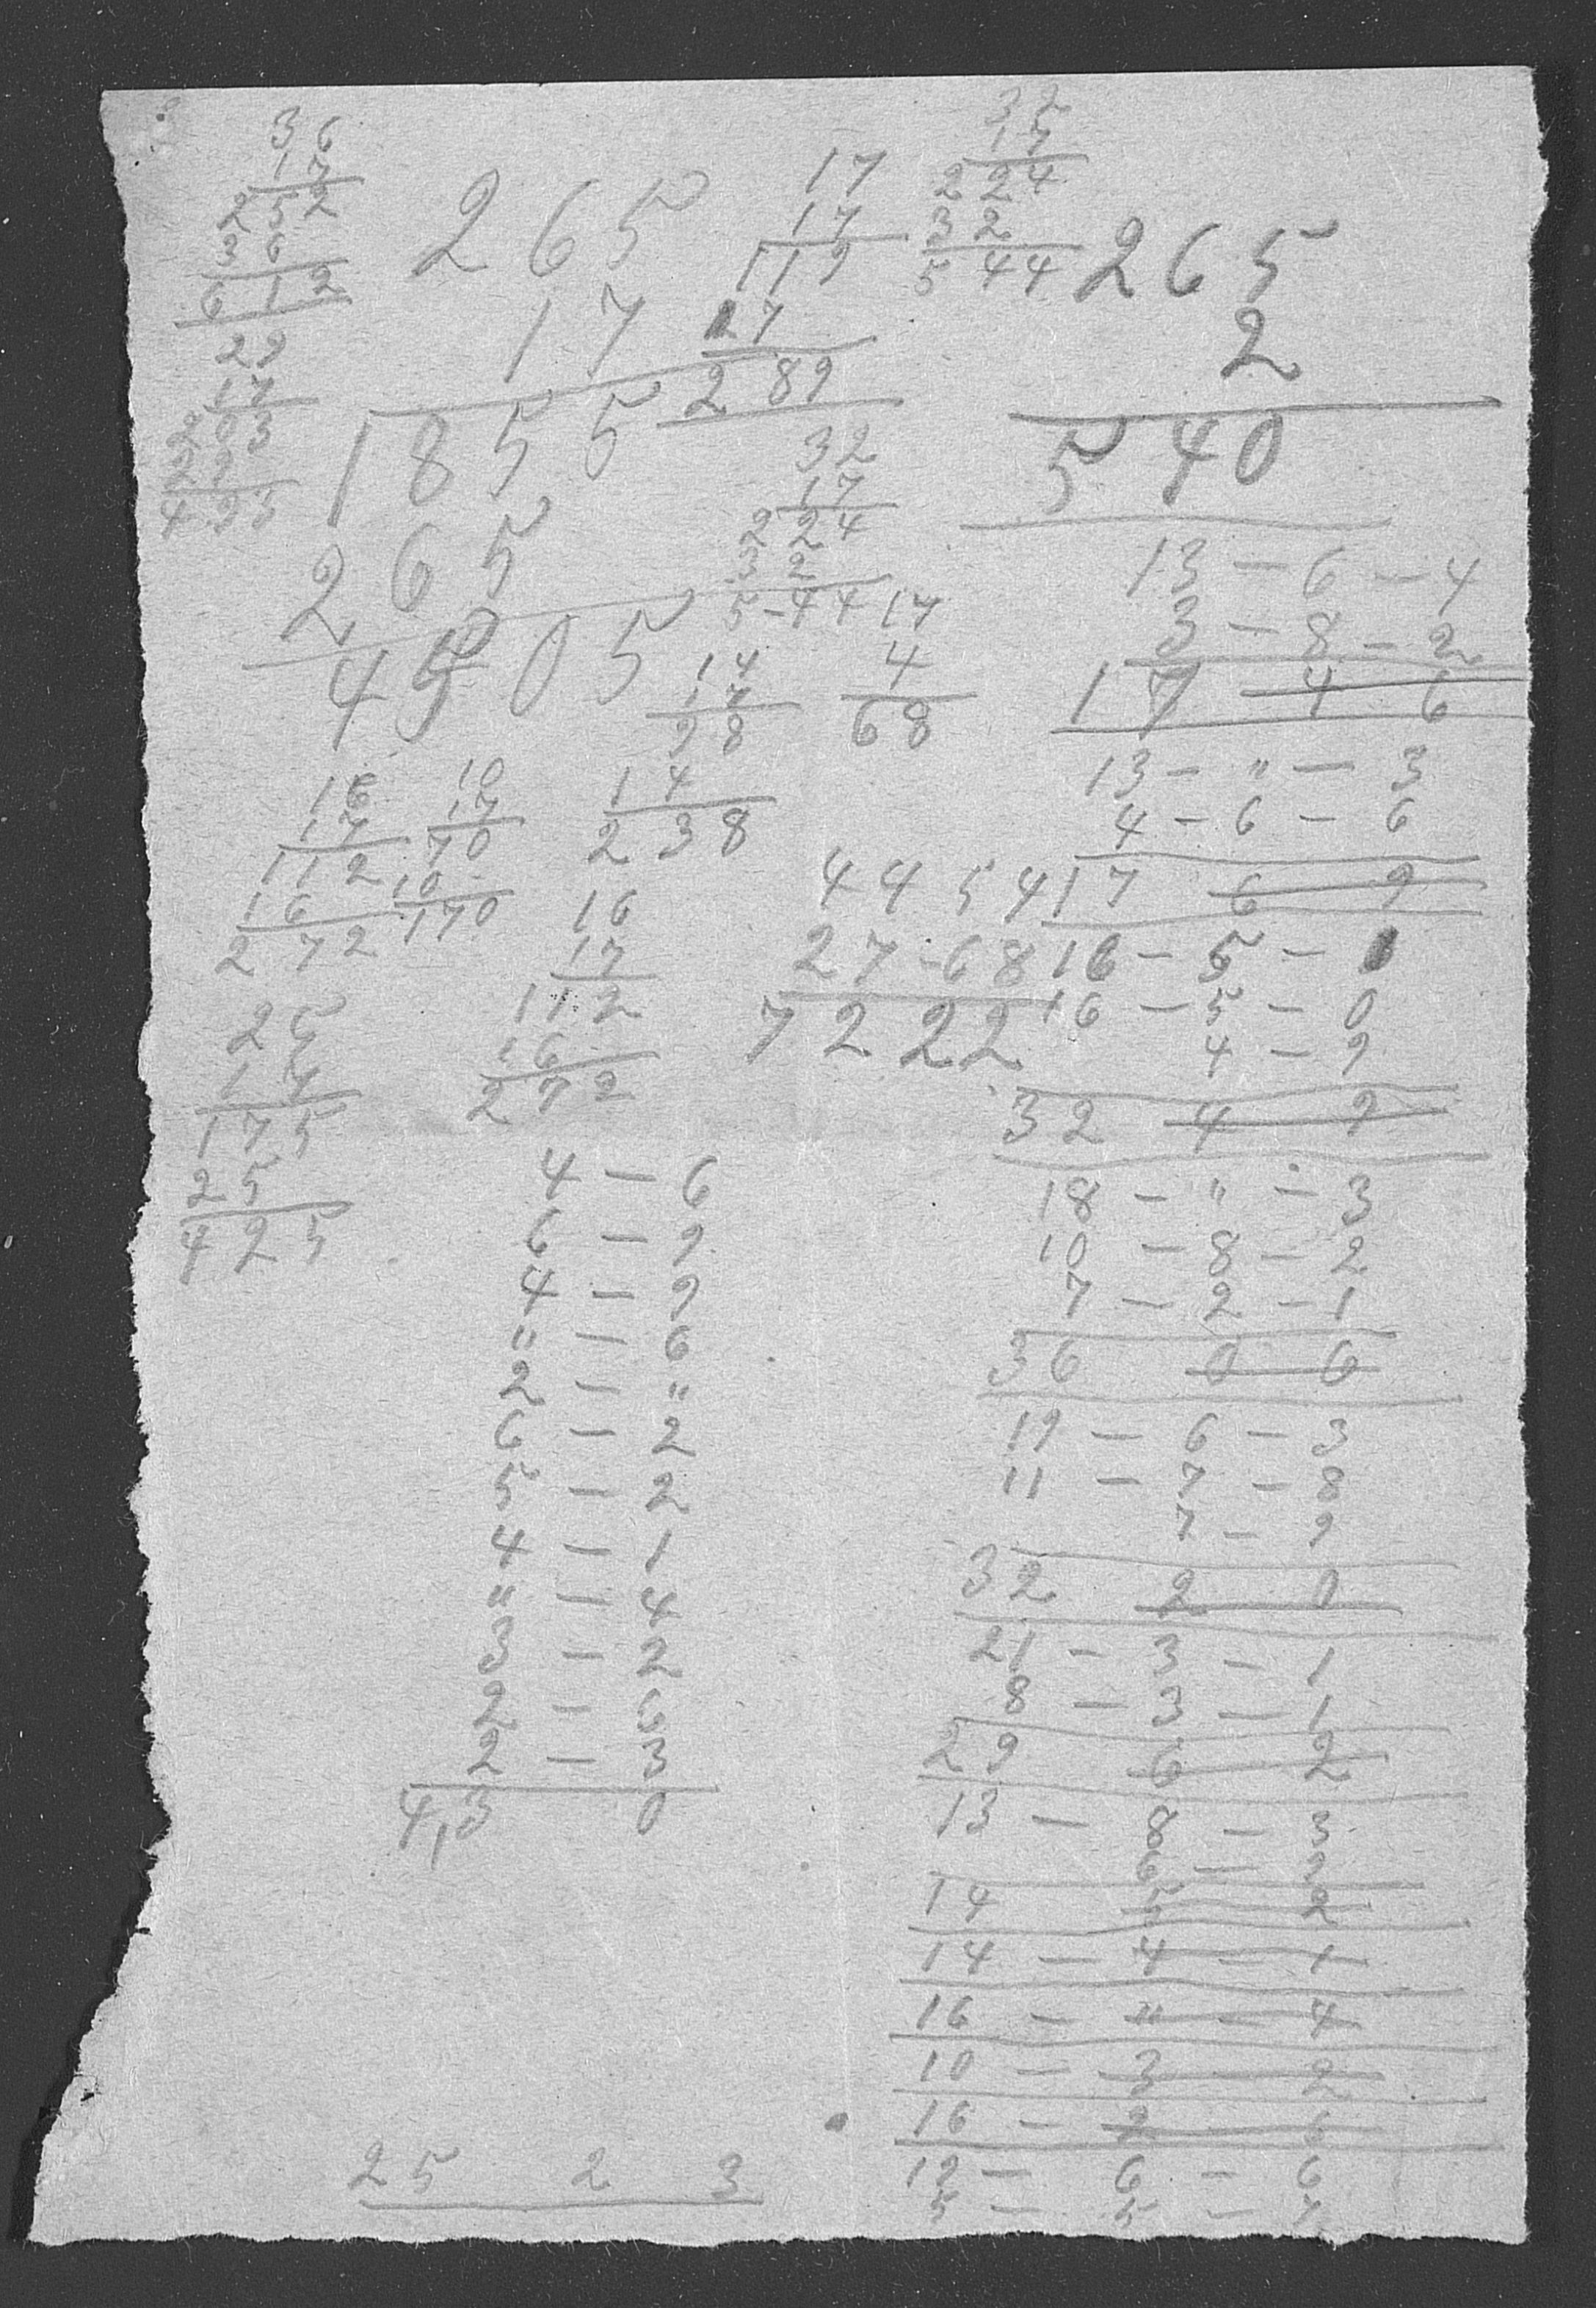 36
17
252
36
612
29
17
203
29
493
265
17
1855
265
4505
17
17
119
17
289
32
17
224
32
544
265
2
540
32
17
224
32
5-44
17
4
68
14
17
98
14
238
16
17
112
16
272
10
17
70
10
170
16
17
112
16
272
25
17
175
25
425
44 54
27-68
7222
4 — 6
6 — 9
4 — 9
" — 6
2 — "
6 — 2
5 — 2
4 — 1
" — 4
3 — 2
2 — 6
2 — 3
4,3 0
25 2 3
13 — 6 — 4
3 — 8 — 2
17 4 6
13 — " — 3
4 — 6 — 6
17 6 9
16 — 5 —
16 — 5 — 0
4 — 9
32 4 9
18 — " — 3
10 — 8 — 2
7 — 2 — 1
36 0 6
19 — 6 — 3
11 — 7 — 8
7 — 9
32 2 0
21 — 3 — 1
8 — 3 — 1
29 6 2
13 — 8 — 3
6 — 9
14 5 2
14 — 4 — 1
16 — " — 4
10 — 3 — 2
16 — 2 — 6
19 — 6 — 6
5 — 5 — 7